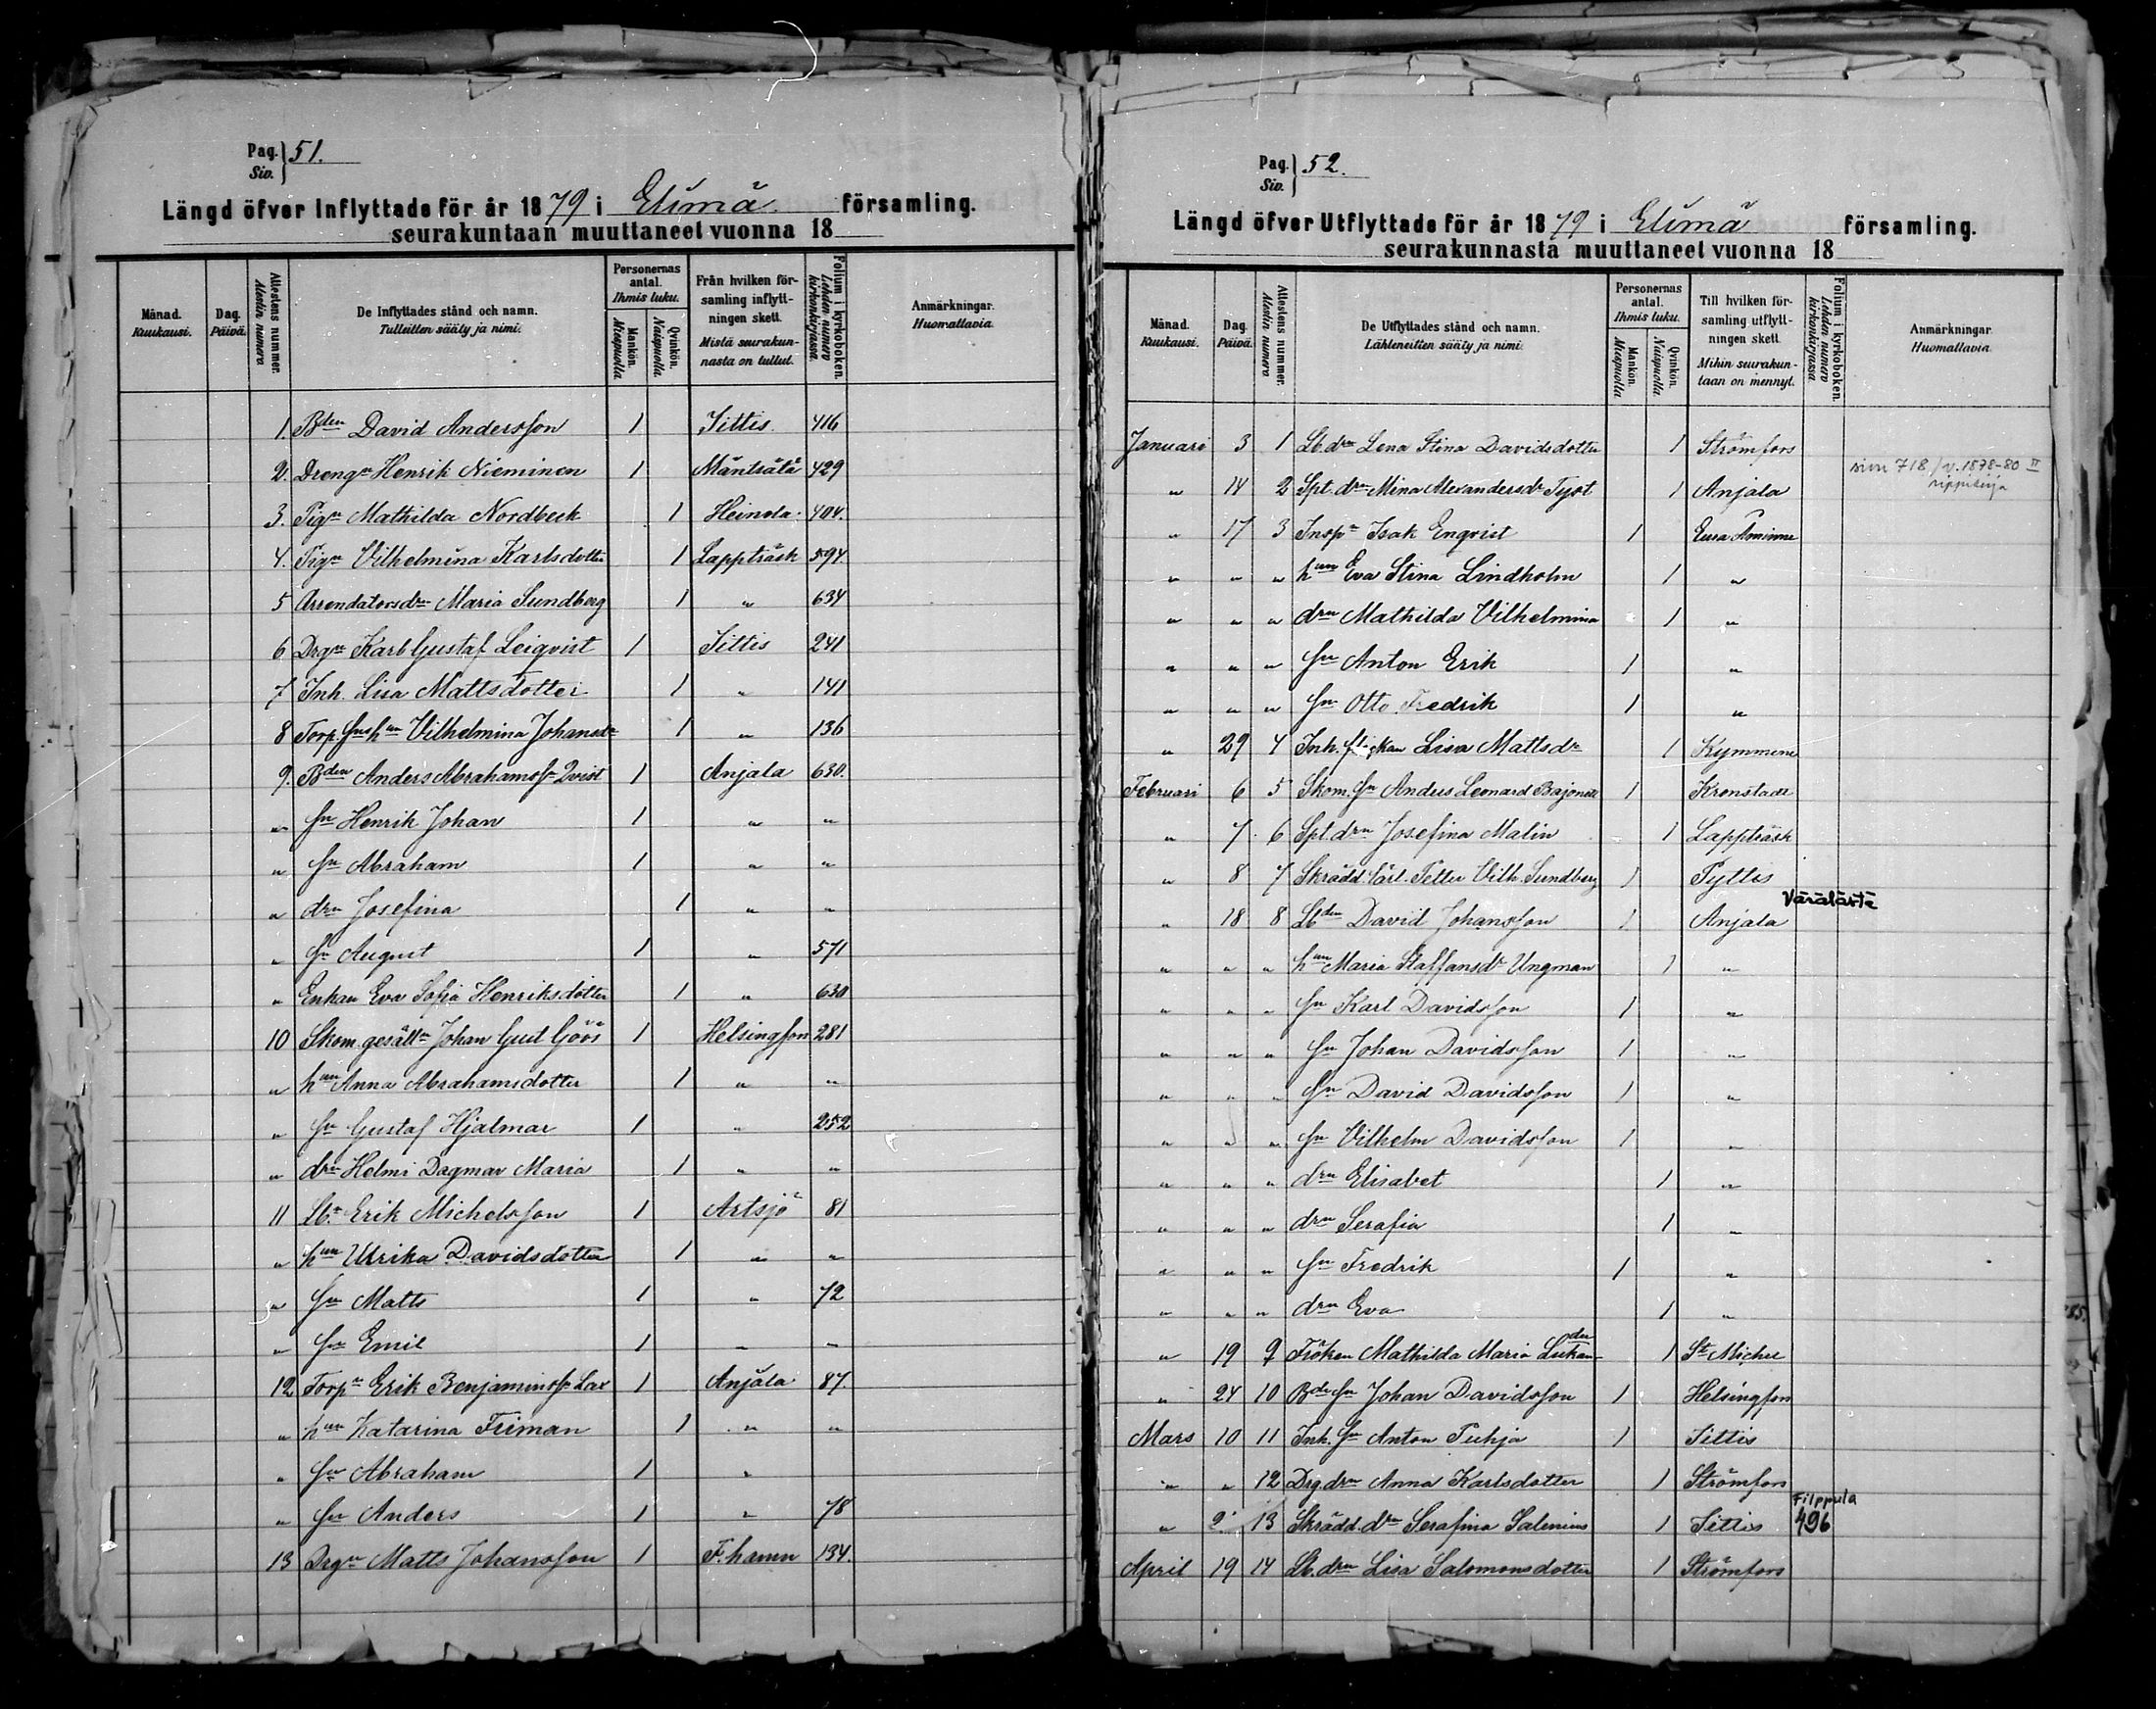 Pag. Siv. 51.
Längd öfver Inflyttade för år 1879 i Elimä församling.
seurakuntaan muuttaneet vuonna 18
Månad. Kuukausi.
Dag. Päivä.
Attestens nummer. Atestin numero
De Inflyttades stånd och namn. Tulleitten sääty ja nimi.
Personernas antal. Ihmis luku.
Mankön. Miespuolia
Qvinkön. Naispuolia
Från hvilken församling inflyttningen skett. Mistä seurakunnasta on tullut.
Folium i kyrkoboken. Lehden numero kirkonkirjassa.
Anmärkningar. Huomattavia.
1. Bden David Andersson 1 Sittis 416
2. Drengn Henrik Nieminen 1 Mäntsälä 429
3. Pign Mathilda Nordbeck 1 Heinola 404.
4. Pign Vilhelmina Karlsdotter 1 Lappträsk 594.
5 Arrendatorsdrn Maria Sundberg 1 " 634
6 Drgn Karl Gustaf Leiqvist 1 Sittis 241
7 Inh. Lisa Mattsdotter 1 " 141
8 Torp. sns hun Vilhelmina Johansdr 1 " 136
9. Bden Anders Abrahamss. Qvist 1 Anjala 630.
" sn Henrik Johan 1 " "
" sn Abraham 1 " "
" drn Josefina 1 " "
" sn August 1 " 571
" Enkan Eva Sofia Henriksdotter 1 " 630
10 Skom. gesälln Johan Gust Göös 1 Helsingfors 281
" hun Anna Abrahamsdotter 1 " "
" sn Gustaf Hjalmar 1 " 252
" drn Helmi Dagmar Maria 1 " "
11 Lb. Erik Michelsson 1 Artsjö 81
" hun Ulrika Davidsdotter 1 " "
" sn Matts 1 " 72
" sn Emil 1 " "
12 Torpn Erik Benjaminss. Lax 1 Anjala 87.
" hun Katarina Friman 1 " "
" sn Abraham 1 "
" sn Anders 1 " 78
13 Drgn Matts Johansson 1 F.hamn 134.
Pag. Siv. 52.
Längd öfver Utflyttade för år 1879 i Elimä församling.
seurakunnasta muuttaneet vuonna 18
Månad. Kuukausi.
Dag. Päivä.
Attestens nummer. Atestin numero
De Utflyttades stånd och namn. Lähteneitten sääty ja nimi.
Personernas antal. Ihmis luku.
Mankön. Miespuolia
Qvinkön. Naispuolia
Till hvilken församling utflyttningen skett. Mihin seurakuntaan on mennyt.
Folium i kyrkoboken. Lehden numero kirkonkirjassa.
Anmärkningar. Huomattavia.
Januari 3 1 Lb. drn Lena Stina Davidsdotter 1 Strömfors
sivu 718 / v. 1878-80 II rippikirja
" 14 2 Spt. drn Mina Alexandersdr Tyst 1 Anjala
" 17 3 Inspr Isak Enqvist 1 Eura Åminne
" " " hun Eva Stina Lindholm 1 "
" " " drn Mathilda Vilhelmina 1 "
" " " sn Anton Erik 1 "
" " " sn Otto Fredrik 1 "
" 29 4 Inh. flickan Lisa Mattsdr 1 Kymmene
Februari 6 5 Skom. sn Anders Leonard 1 Kronstadt
" 7 6 Spt. drn Josefina Malin 1 Lappträsk
" 8 7 Skrädd. lärl. Petter Vilh. Sundberg 1 Pyttis
Värälästä
" 18 8 Lbden David Johansson 1 Anjala
" " " hun Maria Staffansdr Ungman 1 "
" " " sn Karl Davidsson 1 "
" " " sn Johan Davidsson 1 "
" " " sn David Davidsson 1 "
" " " sn Vilhelm Davidsson 1 "
" " " drn Elisabet 1 "
" " " drn Serafia 1 "
" " " sn Fredrik 1 "
" " " drn Eva 1 "
" 19 9 Fröken Mathilda Maria 1 St Michel
" 24 10 Bde sn Johan Davidsson 1 Helsingfors
Mars 10 11 Inh. sn Anton Puhja 1 Sittis
" " 12 Drg. drn Anna Karlsdotter 1 Strömfors
Filppula
" 13 Skrädd. drn Serafina Salenius 1 Sittis 496
April 19 14 Lb. drn Lisa Salomonsdotter 1 Strömfors